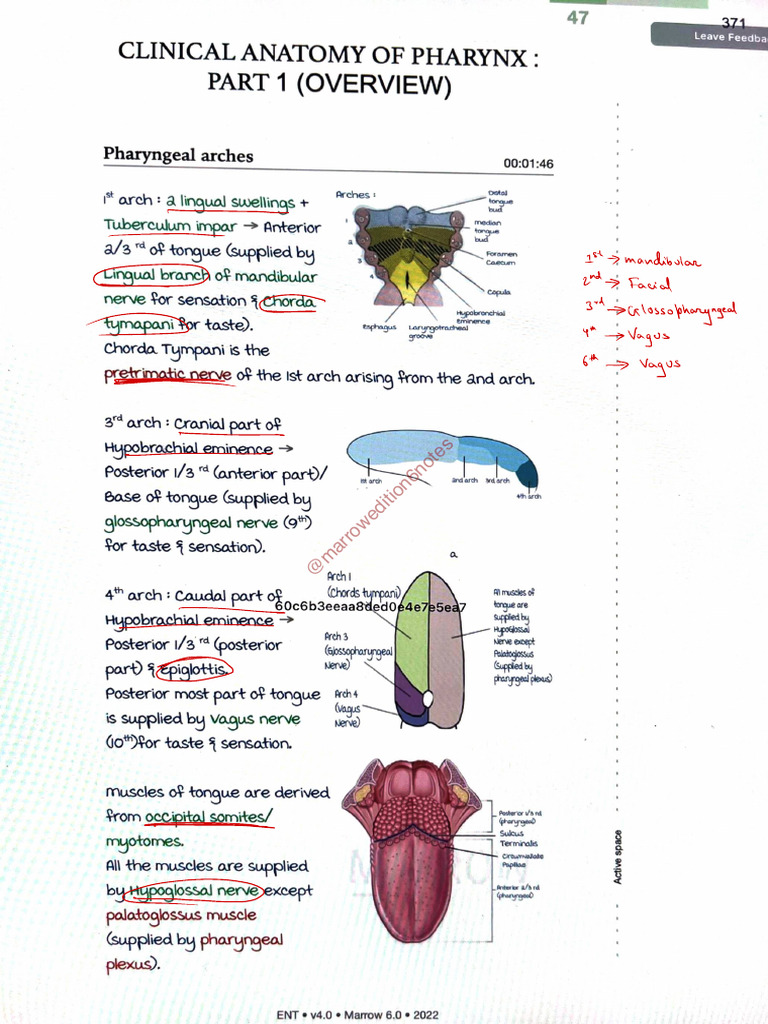 47
371
Leave Feedba
CLINICAL ANATOMY OF PHARYNX :
PART 1 (OVERVIEW)
Pharyngeal arches
00:01:46
1st arch : 2 lingual swellings +
Tuberculum impar → Anterior
2/3 rd of tongue (supplied by
Lingual branch of mandibular
nerve for sensation & Chorda
tymapani for taste).
Chorda Tympani is the
pretrimatic nerve of the 1st arch arising from the 2nd arch.
Arches :
1
2
3
4
Distal
tongue
bud
median
tongue
bud
Foramen
Caecum
Copula
Hypobronchial
Eminence
Esphagus
Laryngotracheal
groove
1st → mandibular
2nd → Facial
3rd → Glossopharyngeal
4th → Vagus
6th → Vagus
3rd arch : Cranial part of
Hypobrachial eminence →
Posterior 1/3 rd (anterior part)/
Base of tongue (supplied by
glossopharyngeal nerve (9th)
for taste & sensation).
1st arch
2nd arch
3rd arch
4th arch
@marrowedition6notes
a
4th arch : Caudal part of
Hypobrachial eminence →
Posterior 1/3 rd (posterior
part) & Epiglottis.
Posterior most part of tongue
is supplied by vagus nerve
(10th)for taste & sensation.
Arch 1
(Chords tympani)
60c6b3eeaa8ded0e4e7e5ea7
Arch 3
(Glossopharyngeal
Nerve)
Arch 4
(Vagus
Nerve)
All muscles of
tongue are
supplied by
Hypoglossal
Nerve except
Palatoglossus
(Supplied by
pharyngeal plexus)
muscles of tongue are derived
from occipital somites/
myotomes.
All the muscles are supplied
by Hypoglossal nerve except
palatoglossus muscle
(supplied by pharyngeal
plexus).
Posterior 1/3 rd
(pharyngeal)
Sulcus
Terminalis
Circumvallate
Papillae
Anterior 2/3 rd
(pharyngeal)
Active space
ENT • v4.0 • Marrow 6.0 • 2022